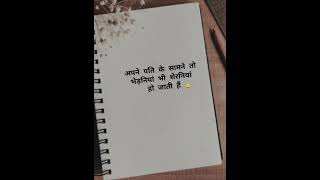 अपने पति के सामने तो
भेड़नियां भी शेरनियां
हो जाती हैं 😄